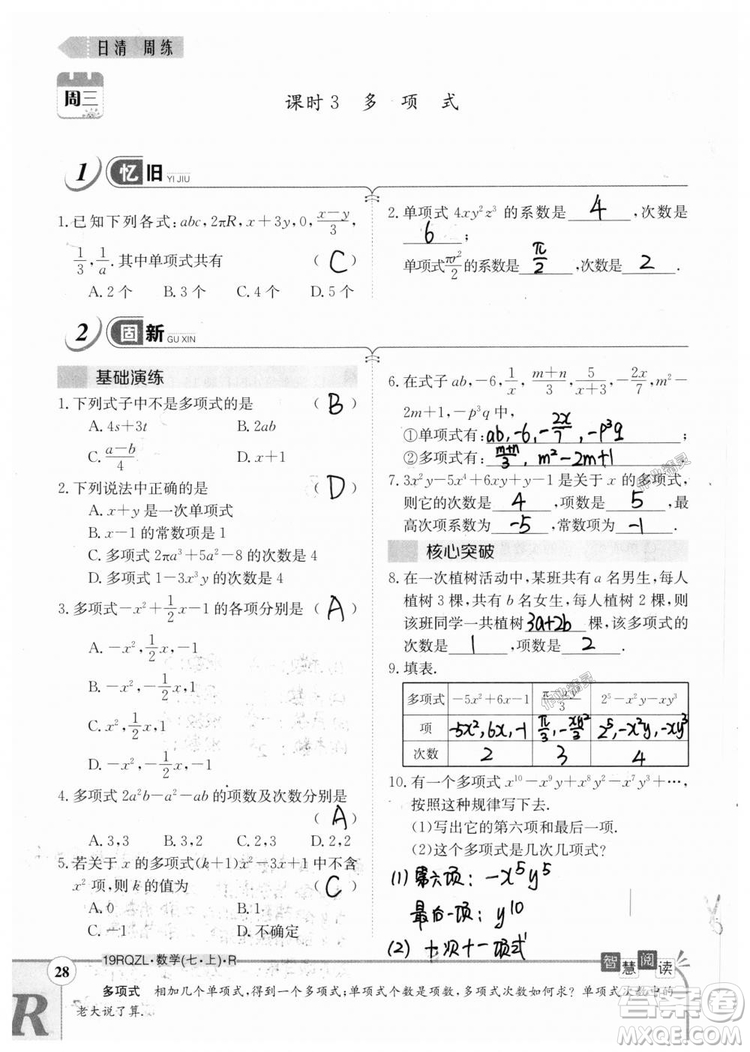 日清 周练
周三
课时3 多 项 式
1 忆旧 YI JIU
1.已知下列各式:abc,2πR,x+3y,0,(x-y)/3,
1/3,1/a.其中单项式共有 ( C )
A.2个 B.3个 C.4个 D.5个
2.单项式4xy²z³的系数是 4 ,次数是
6 ;
单项式πr²/2的系数是 π/2 ,次数是 2 .
2 固新 GU XIN
基础演练
1.下列式子中不是多项式的是 ( B )
A.4s+3t B.2ab
C.(a-b)/4 D.x+1
2.下列说法中正确的是 ( D )
A.x+y是一次单项式
B.x-1的常数项是1
C.多项式2πa³+5a²-8的次数是4
D.多项式1-3x³y的次数是4
3.多项式-x²+1/2x-1的各项分别是 ( A )
A.-x²,1/2x,-1
B.-x²,-1/2x,-1
C.x²,1/2x,1
D.-x²,-1/2x,1
4.多项式2a²b-a²-ab的项数及次数分别是
( A )
A.3,3 B.3,2 C.2,3 D.2,2
5.若关于x的多项式(k+1)x²+3x-2中不含
x²项,则k的值为 ( C )
A.0 B.1
C.-1 D.不确定
6.在式子ab,-6,1/x,(m+n)/3,5/(x+3),-2x/7,
2m+1,-p³q中,
①单项式有: ab,-6,-2x/7,-p³q
②多项式有: (m+n)/3,m²-2m+1
7.3x²y-5x⁴+6xy+y-1是关于x的多项式,
则它的次数是 4 ,项数是 5 ,最
高次项系数为 -5 ,常数项为 -1 .
核心突破
8.在一次植树活动中,某班共有a名男生,每人
植树3棵,共有b名女生,每人植树2棵,则
该班同学一共植树 3a+2b 棵,该多项式的
次数是 1 ,项数是 2 .
9.填表.
多项式 -5x²+6x-1 2⁵-x²y-xy³
项 -5x²,6x,-1 π/3,-xy²/3 2⁵,-x²y,-xy³
次数 2 3 4
10.有一个多项式x¹⁰-x⁹y+x⁸y²-x⁷y³+…,
按照这种规律写下去.
(1)写出它的第六项和最后一项.
(2)这个多项式是几次几项式?
(1)第六项:-x⁵y⁵
最后一项:y¹⁰
(2)十次十一项式
28
19RQZL·数学(七·上)·R
智慧阅读
多项式 相加几个单项式,得到一个多项式;单项式个数是项数,多项式次数如何求? 单项式次数中的
老大说了算.
R
答案圈